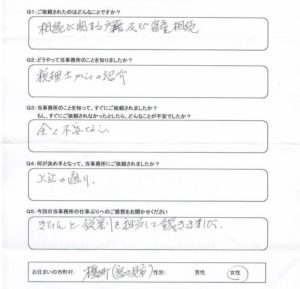 Q1:ご依頼されたのはどんなことですか?
相続に関する戸籍及び畜産相続
Q2:どうやって当事務所のことを知りましたか?
税理士からの紹介
Q3:当事務所のことを知って、すぐにご依頼されましたか?
もし、すぐにご依頼されなかったとしたら、どんなことが不安でしたか?
全く不安なし
Q4:何が決め手となって、当事務所にご依頼されましたか?
上記の通り.
Q5:今回の当事務所の仕事ぶりへのご感想をお聞かせください
きちんと役割を担当して頂きました.
お住まいの市町村: 性別: 男性 女性